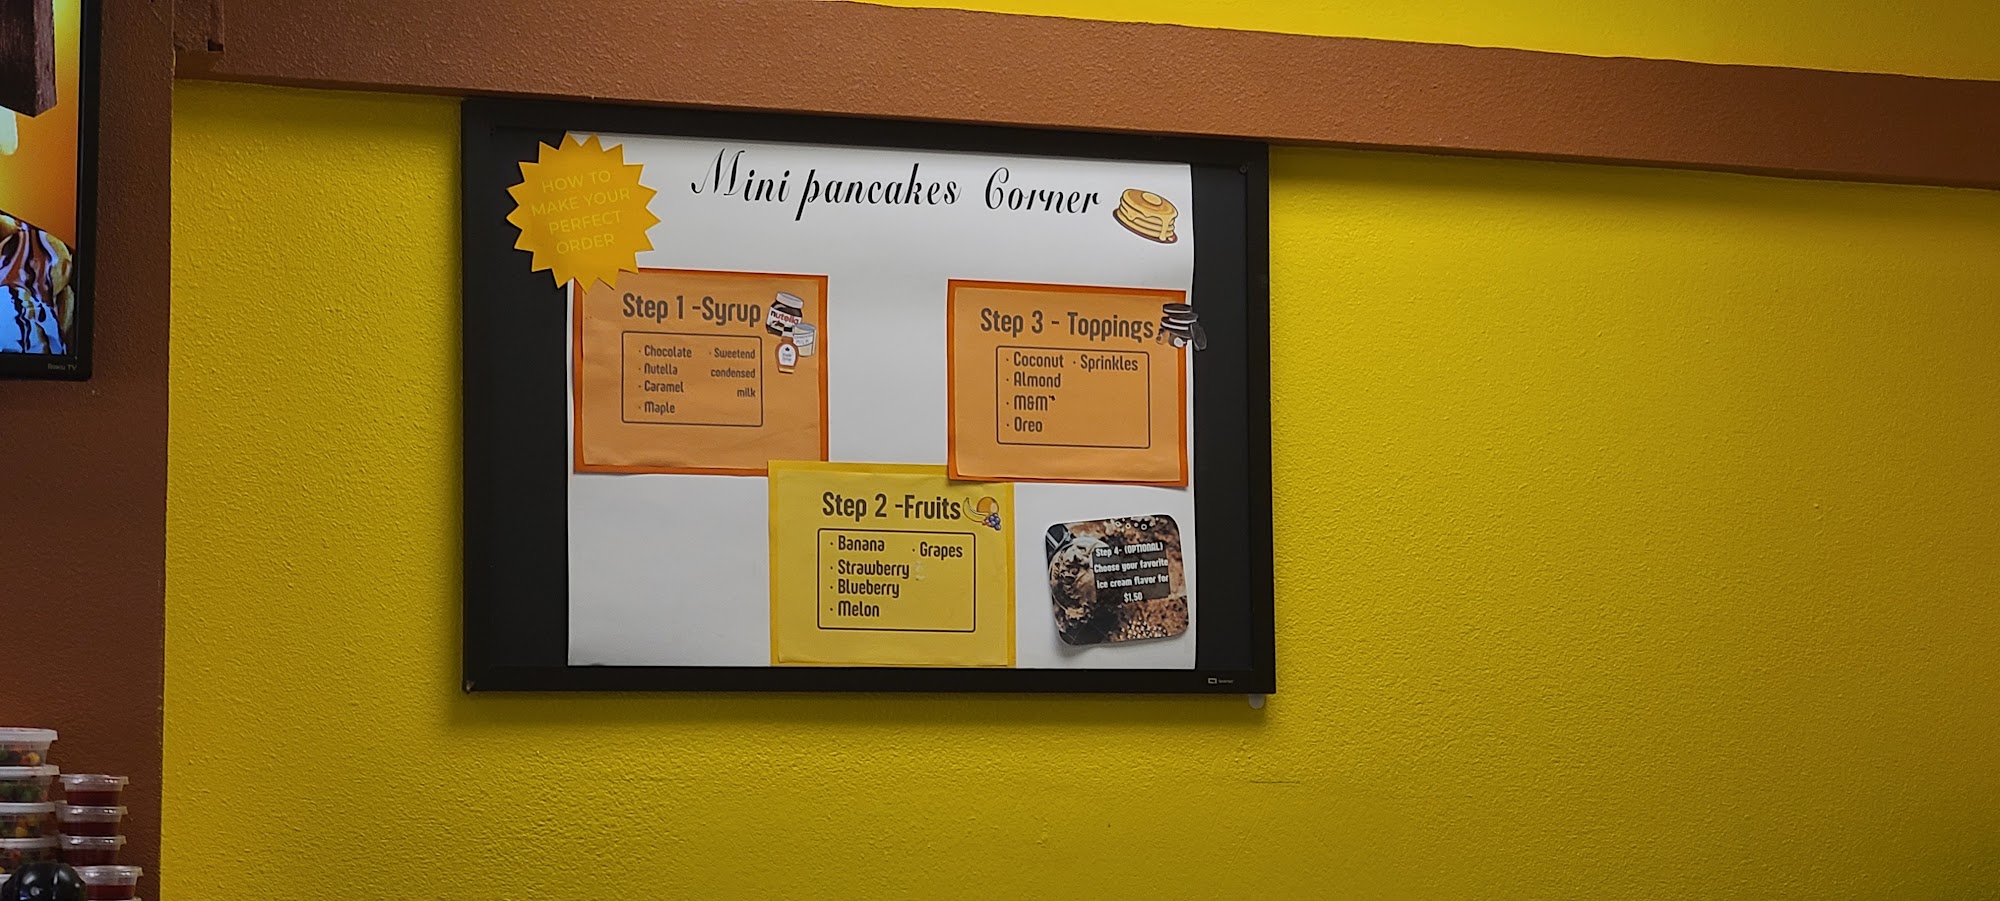 HOW TO
MAKE YOUR
PERFECT
ORDER
Mini pancakes Corner
Step 1 -Syrup
nutella
· Chocolate
· Nutella
· Caramel
· Maple
· Sweetend
condensed
milk
Step 2 -Fruits
· Banana
· Strawberry
· Blueberry
· Melon
· Grapes
Step 3 - Toppings
· Coconut
· Almond
· M&M's
· Oreo
· Sprinkles
Step 4- (OPTIONAL)
Choose your favorite
ice cream flavor for
$1.50
Roku TV